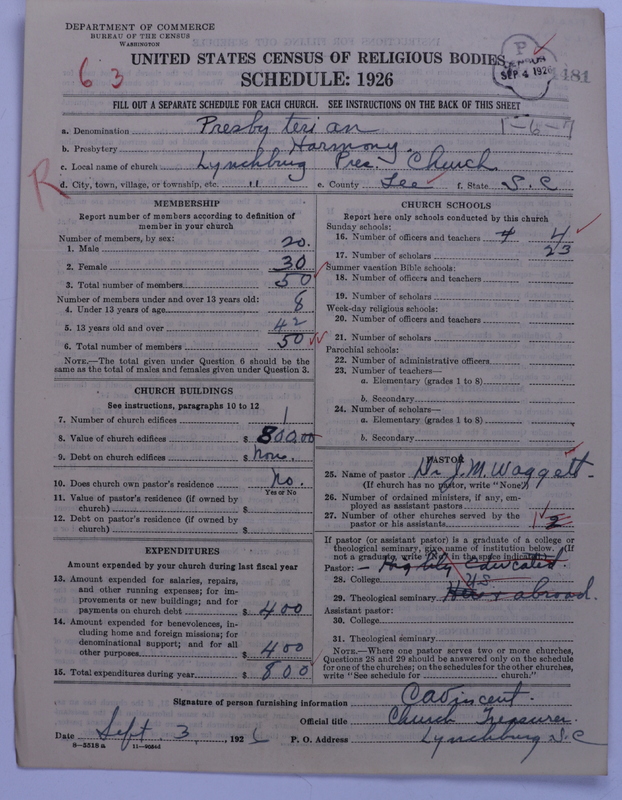 DEPARTMENT OF COMMERCE
BUREAU OF THE CENSUS
WASHINGTON
UNITED STATES CENSUS OF RELIGIOUS BODIES
SCHEDULE: 1926
63
P
CENSUS
SEP 4 1926
FILL OUT A SEPARATE SCHEDULE FOR EACH CHURCH. SEE INSTRUCTIONS ON THE BACK OF THIS SHEET
1-6-7
a. Denomination Presbyterian
b. Presbytery Harmony.
c. Local name of church Lynchburg Pres. Church
R
d. City, town, village, or township, etc. " e. County Lee f. State S.C
MEMBERSHIP
Report number of members according to definition of member in your church
Number of members, by sex:
1. Male 20.
2. Female 30
3. Total number of members 50
Number of members under and over 13 years old:
4. Under 13 years of age 8
5. 13 years old and over 42
6. Total number of members 50
NOTE.—The total given under Question 6 should be the same as the total of males and females given under Question 3.
CHURCH BUILDINGS
See instructions, paragraphs 10 to 12
7. Number of church edifices 1
8. Value of church edifices $ 800.00
9. Debt on church edifices $ None.
10. Does church own pastor's residence No.
Yes or No
11. Value of pastor's residence (if owned by church) $
12. Debt on pastor's residence (if owned by church) $
EXPENDITURES
Amount expended by your church during last fiscal year
13. Amount expended for salaries, repairs, and other running expenses; for improvements or new buildings; and for payments on church debt $ 400
14. Amount expended for benevolences, including home and foreign missions; for denominational support; and for all other purposes $ 400
15. Total expenditures during year $ 800
CHURCH SCHOOLS
Report here only schools conducted by this church
Sunday schools:
16. Number of officers and teachers 4 4
17. Number of scholars 23
Summer vacation Bible schools:
18. Number of officers and teachers
19. Number of scholars
Week-day religious schools:
20. Number of officers and teachers
21. Number of scholars
Parochial schools:
22. Number of administrative officers
23. Number of teachers—
a. Elementary (grades 1 to 8)
b. Secondary
24. Number of scholars—
a. Elementary (grades 1 to 8)
b. Secondary
PASTOR
25. Name of pastor Dr J.M. Waggett
(If church has no pastor, write "None")
26. Number of ordained ministers, if any, employed as assistant pastors
27. Number of other churches served by the pastor or his assistants 1 2
If pastor (or assistant pastor) is a graduate of a college or theological seminary, give name of institution below. (If not a graduate, write "No" in the space indicated)
Pastor: - Highly Educated.
28. College US
29. Theological seminary Here & abroad.
Assistant pastor:
30. College
31. Theological seminary
NOTE.—Where one pastor serves two or more churches, Questions 28 and 29 should be answered only on the schedule for one of the churches; on the schedules for the other churches, write "See schedule for church."
Signature of person furnishing information
Official title Church Treasurer.
Date Sept. 3, 1926 P. O. Address Lynchburg S.C